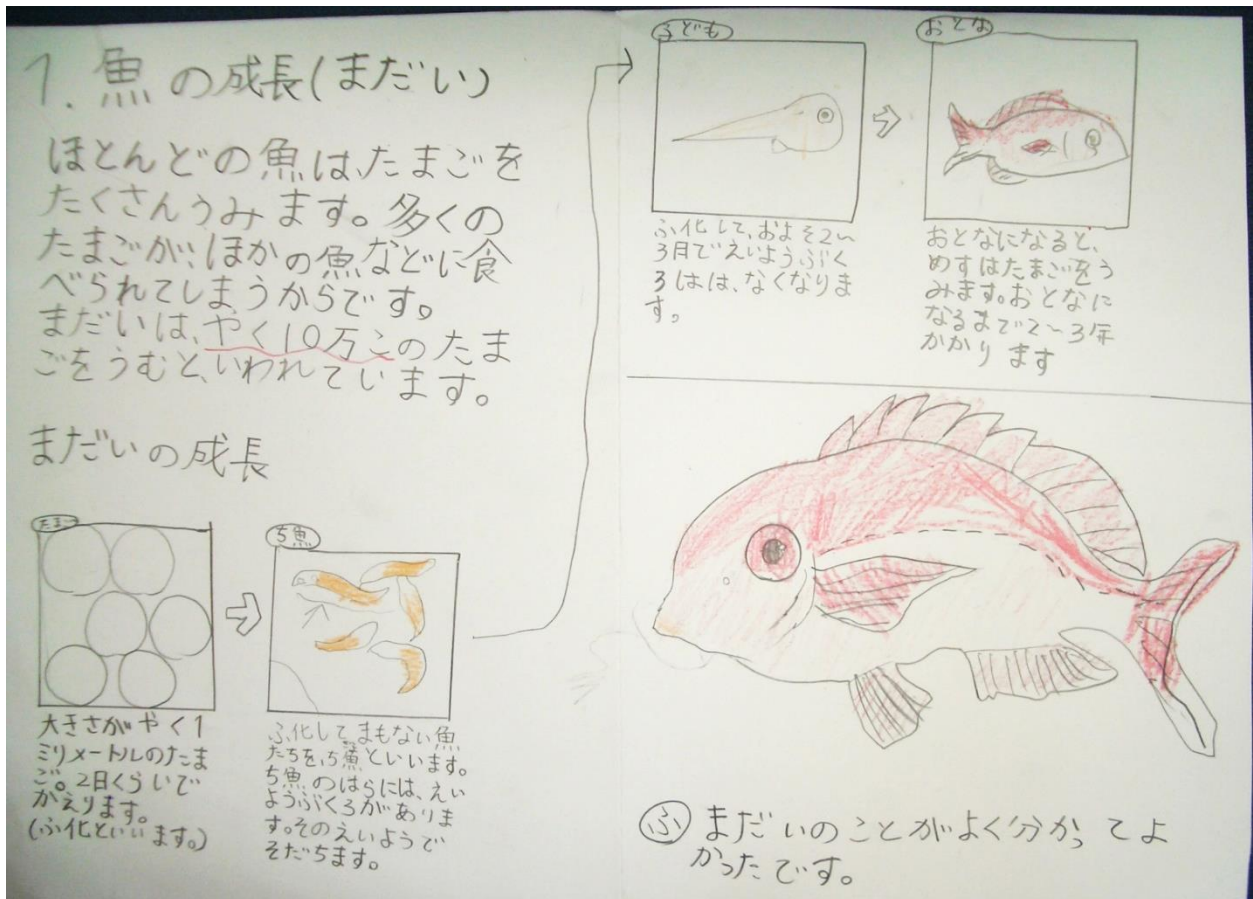 1. 魚の成長(まだい)
ほとんどの魚は、たまごを
たくさんうみます。多くの
たまごが、ほかの魚などに食
べられてしまうからです。
まだいは、やく10万このたま
ごをうむと、いわれています。
まだいの成長
たまご
大きさがやく1
ミリメートルのたま
ご。2日くらいで
かえります。
(ふ化といいます。)
ち魚
ふ化してまもない魚
たちを、ち魚といいます。
ち魚のはらには、えい
ようぶくろがありま
す。そのえいようで
そだちます。
こども
ふ化して、およそ2〜
3月でえいようぶく
ろはは、なくなりま
す。
おとな
おとなになると、
めすはたまごをう
みます。おとなに
なるまで2〜3年
かかります
ふ まだいのことがよく分かってよ
かったです。